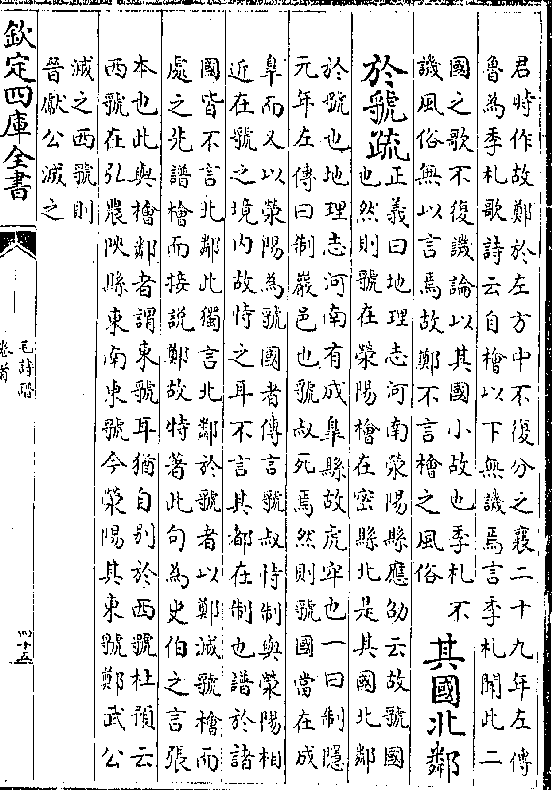 君時作故鄭於左方中不復分之襄二十九年左傳
魯為季札歌詩云自檜以下無譏焉言季札聞此二
國之歌不復譏論以其國小故也季札不
譏風俗無以言焉故鄭不言檜之風俗
其國北鄰
於虢疏
正義曰地理志河南滎陽縣應劭云故虢國
也然則虢在滎陽檜在密縣北是其國北鄰
於虢也地理志河南有成臯縣故虎牢也一曰制隱
元年左傳曰制巖邑也虢叔死焉然則虢國當在成
臯而又以滎陽為虢國者傳言虢叔恃制與滎陽相
近在虢之境内故恃之耳不言其都在制也譜於諸
國皆不言北鄰此獨言北鄰於虢者以鄭滅虢檜而
處之先譜檜而接說鄭故特著此句為史伯之言張
本也此與檜鄰者謂東虢耳猶自别於西虢杜預云
西虢在弘農陜縣東南東虢今滎陽其東虢鄭武公
滅之西虢則
晉獻公滅之
欽定四庫全書
毛詩譜
卷首
四十五